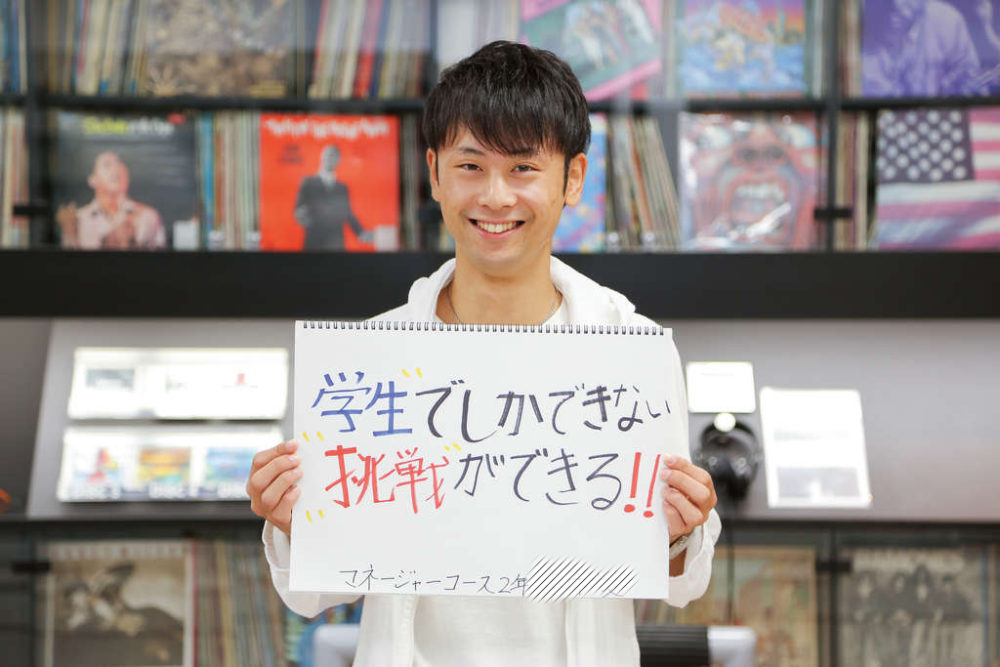 "学生"でしかできない
"挑戦"ができる!!
マネージャーコース2年